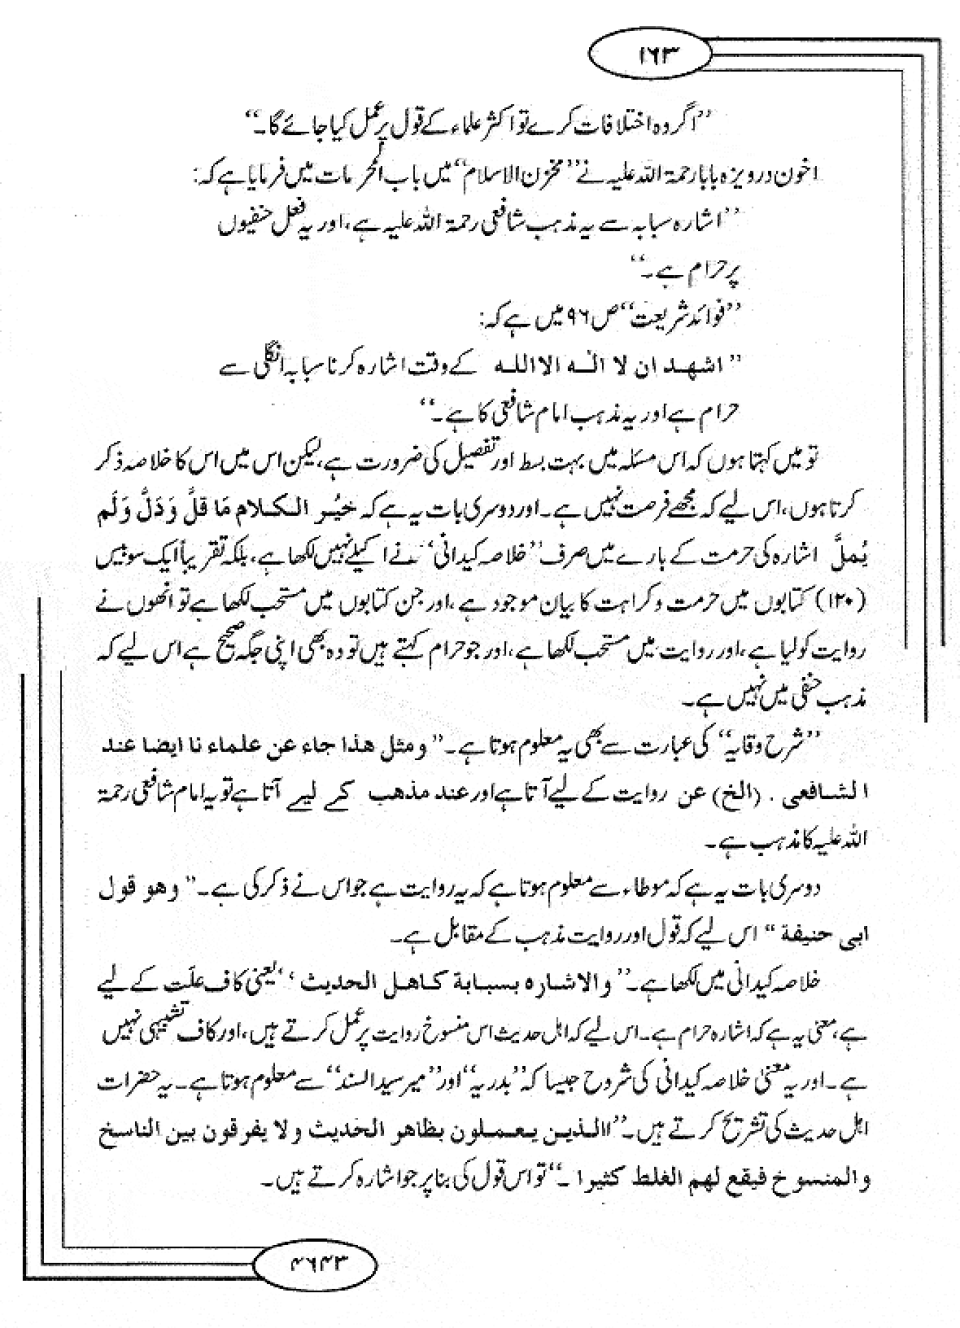 ۱۶۳
”اگر وہ اختلافات کرے تو اکثر علماء کے قول پر عمل کیا جائے گا۔“
اخون درویزہ بابا رحمۃ اللہ علیہ نے ”مخزن الاسلام“ میں باب الحرمات میں فرمایا ہے کہ:
”اشارہ سبابہ سے یہ مذہب شافعی رحمۃ اللہ علیہ ہے، اور یہ فعل حنفیوں
پر حرام ہے۔“
”فوائد شریعت“ ص ۹۶ میں ہے کہ:
”اشهد ان لا الہ الا اللہ کے وقت اشارہ کرنا سبابہ انگلی سے
حرام ہے اور یہ مذہب امام شافعی کا ہے۔“
تو میں کہتا ہوں کہ اس مسئلہ میں بہت بسط اور تفصیل کی ضرورت ہے، لیکن اس میں اس کا خلاصہ ذکر
کرتا ہوں، اس لیے کہ مجھے فرصت نہیں ہے۔ اور دوسری بات یہ ہے کہ خَیْر الکلام مَا قَلَّ وَدَلَّ وَلَم
یُملَّ اشارہ کی حرمت کے بارے میں صرف ”خلاصہ کیدانی“ نے اکیلے نہیں لکھا ہے، بلکہ تقریباً ایک سو بیس
(۱۲۰) کتابوں میں حرمت و کراہت کا بیان موجود ہے، اور جن کتابوں میں مستحب لکھا ہے تو انھوں نے
روایت کو لیا ہے، اور روایت میں مستحب لکھا ہے، اور جو حرام کہتے ہیں تو وہ بھی اپنی جگہ صحیح ہے اس لیے کہ
مذہب حنفی میں نہیں ہے۔
”شرح وقایہ“ کی عبارت سے بھی یہ معلوم ہوتا ہے۔ ”ومثل هذا جاء عن علماء نا ایضا عند
الشافعی . (الخ) عن روایت کے لیے آتا ہے اور عند مذهب کے لیے آتا ہے تو یہ امام شافعی رحمۃ
اللہ علیہ کا مذہب ہے۔
دوسری بات یہ ہے کہ موطاء سے معلوم ہوتا ہے کہ یہ روایت ہے جو اس نے ذکر کی ہے۔ ”وهو قول
ابی حنیفة“ اس لیے کہ قول اور روایت مذہب کے مقابل ہے۔
خلاصہ کیدانی میں لکھا ہے۔ ”والاشارہ بسبابة کاهل الحدیث‘‘ یعنی کاف علّت کے لیے
ہے، معنی یہ ہے کہ اشارہ حرام ہے۔ اس لیے کہ اہل حدیث اس منسوخ روایت پر عمل کرتے ہیں، اور کاف تشبیہی نہیں
ہے۔ اور یہ معنیٰ خلاصہ کیدانی کی شروح جیسا کہ ”بدریہ“ اور ”میر سید السند“ سے معلوم ہوتا ہے۔ یہ حضرات
اہل حدیث کی تشریح کرتے ہیں۔ ”الذین یعملون بظاهر الحدیث ولا یفرقون بین الناسخ
والمنسوخ فیقع لهم الغلط کثیرا۔“ تو اس قول کی بنا پر جو اشارہ کرتے ہیں۔
۴۶۴۳